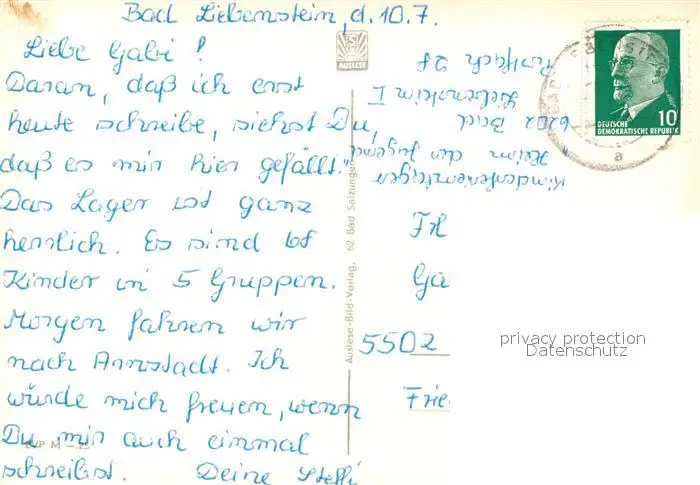 Bad Liebenstein, d. 10.7.
Liebe Gabi!
Daran, daß ich erst
heute schreibe, siehst Du,
daß es mir hier gefällt.
Das Lager ist ganz
herrlich. Es sind
Kinder in 5 Gruppen.
Morgen fahren wir
nach Arnstadt. Ich
würde mich freuen, wenn
Du mir auch einmal
schreibst. Deine Steffi
AUSLESE
Auslese-Bild-Verlag, 62 Bad Salzungen
Kinderferienlager
"Heim der Jugend"
6202 Bad
Liebenstein I
Postfach 28
10
DEUTSCHE
DEMOKRATISCHE REPUBLIK
a
Frl
Ga
5502
Frie
privacy protection
Datenschutz